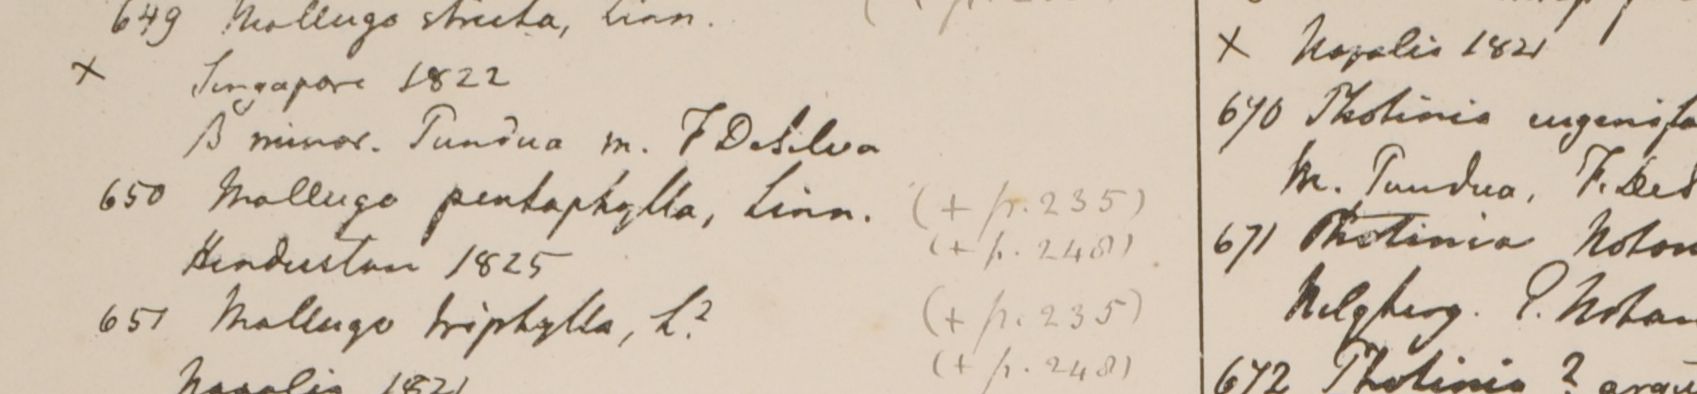 649 Mollugo stricta, Linn.
× Singapore 1822
β minor. Tundua m. F DeSilva
650 Mollugo pentaphylla, Linn. (+ p. 235)
Hindustan 1825 (+ p. 248)
651 Mollugo triphylla, L? (+ p. 235)
(+ p. 248)
Napalia 1821
× Napalia 1821
670 Photinia eugenifo
m. Tundua, F. DeS
671 Photinia Noton
Nilgherry. E. Noton
672 Photinia ? argu